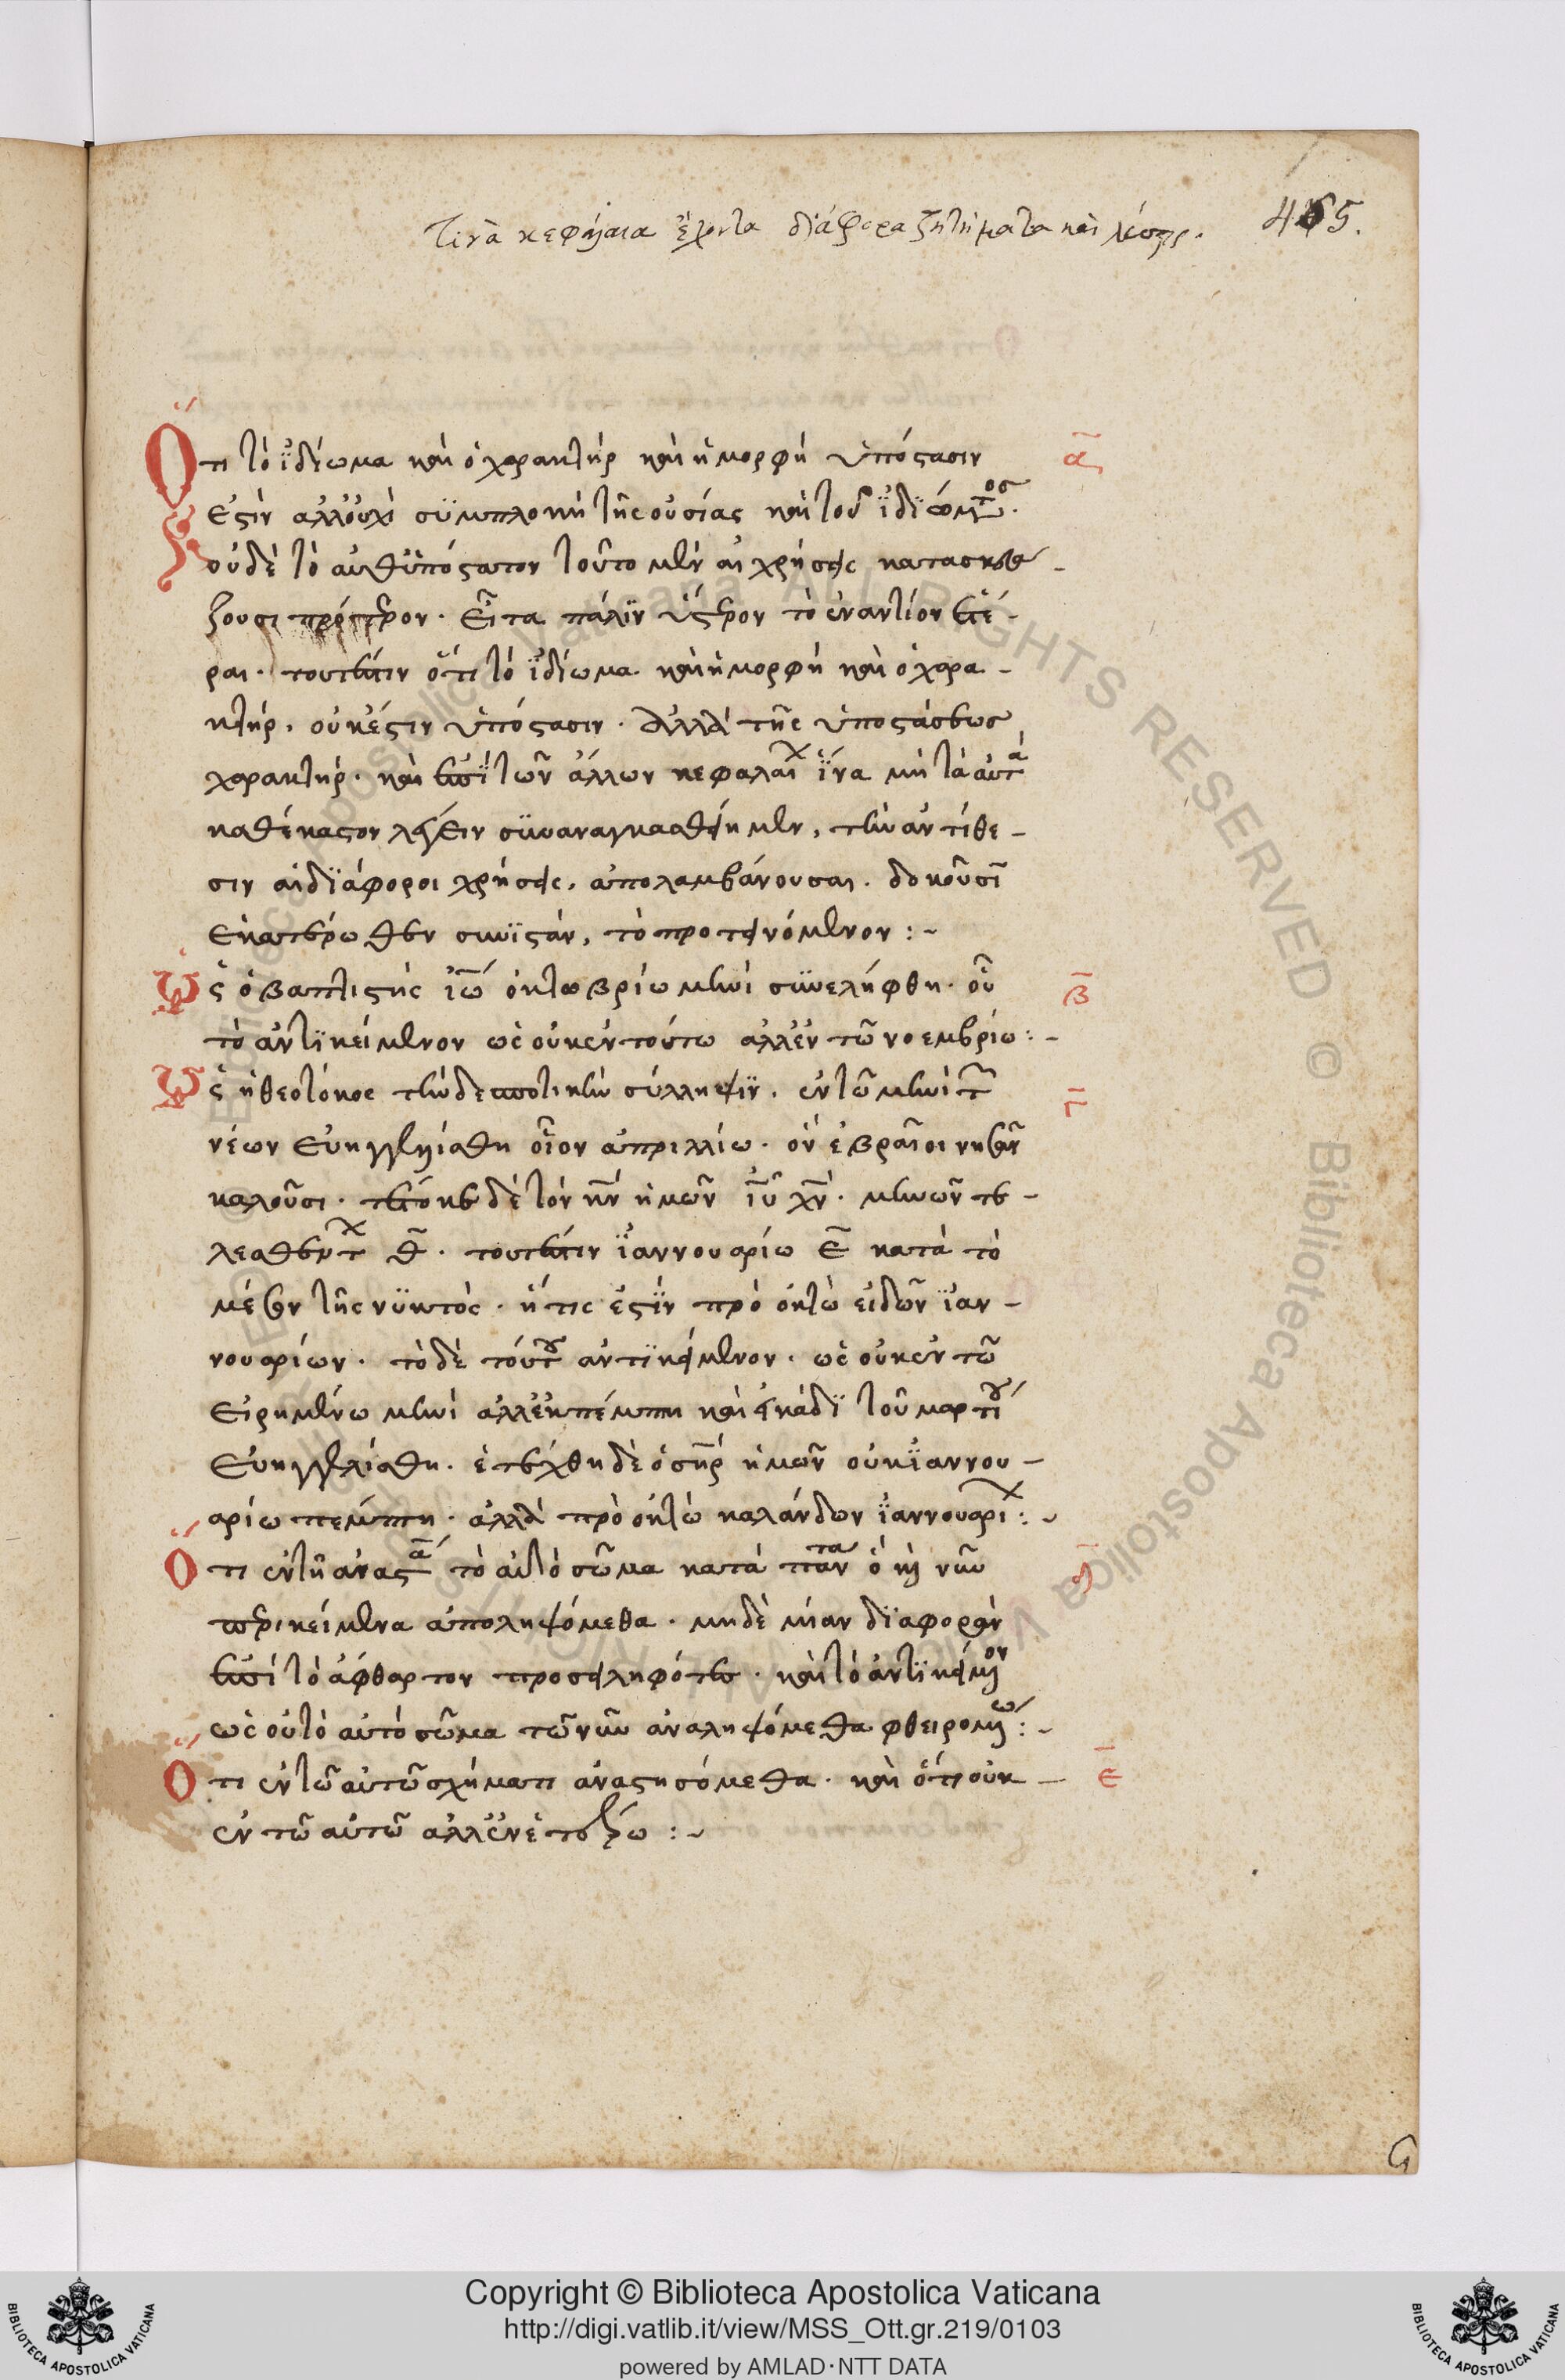 Τινὰ κεφάλαια ἔχοντα διάφορα ζητήματα καὶ λύσεις. 465.
Ὅτι τὸ ἰδίωμα καὶ ὁ χαρακτὴρ καὶ ἡ μορφὴ ὑπόστασιν α
ἐστὶν ἀλλουχὶ συμπλοκὴ τῆς οὐσίας καὶ τοῦ ἰδιώμτος.
οὐδὲ τὸ ἀνθυπόστατον τοῦτο μὲν αἱ χρήσεις κατασκευά-
ζουσι πρότερον. εἶτα πάλιν ὕστερον τὸ ἐναντίον ἑτέ-
ραι. τουτέστιν ὅτι τὸ ἰδίωμα καὶ ἡ μορφὴ καὶ ὁ χαρα-
κτήρ, οὐκ ἔστιν ὑπόστασιν. ἀλλὰ τῆς ὑποστάσεως
χαρακτήρ. καὶ ἐπὶ τῶν ἄλλων κεφαλαι ἵνα μὴ τὰ αὐτὰ
καθέκαστον λέγειν συναναγκασθείημεν, τὴν ἀντίθε-
σιν αἱ διάφοροι χρήσεις, ἀπολαμβάνουσαι. δοκοῦσι
ἑκατέρωθεν συνιστάν, τὸ προτεινόμενον :~
Ὡς ὁ βαπτιστὴς ἰω ὀκτωβρίω μηνὶ συνελήφθη. οὗ β
τὸ ἀντικείμενον ὡς οὐκ ἐν τούτω ἀλλ' ἐν τῶ νοεμβρίω :~
Ὡς ἡ θεοτόκος τὴν δεσποτικὴν σύλληψιν. ἐν τῶ μηνὶ τ γ
νέων εὐηγγελίσθη οἷον ἀπριλλίω. ὃν ἑβραῖοι νησὰν
καλοῦσι. τέτοκε δὲ τὸν κν ἡμῶν ιυ χν. μηνῶν τε-
λεσθέντ θ. τουτέστιν ἰαννουαρίω ε κατὰ τὸ
μέσον τῆς νυκτὸς. ἥτις ἐστὶν πρὸ ὀκτὼ εἰδῶν ἰαν-
νουαρίων. τὸ δὲ τούτου ἀντικείμενον. ὡς οὐκ ἐν τῶ
εἰρημένω μηνὶ ἀλλ' ἐν πέμπτη καὶ εἰκάδι τοῦ μαρτίου
εὐηγγελίσθη. ἐτέχθη δὲ ὁ σηρ ἡμῶν οὐκ ἰαννου-
αρίω πέμπτη. ἀλλὰ πρὸ ὀκτὼ καλάνδων ἰαννουαρι :~
Ὅτι ἐν τῆ ἀναστα τὸ αὐτὸ σῶμα κατὰ πάντα ὃ καὶ νῦν δ
περικείμενα ἀποληψόμεθα. μηδὲ μίαν διαφορὰν
ἐπὶ τὸ ἄφθαρτον προσειληφότες. καὶ τὸ ἀντικείμον
ὡς οὐ τὸ αὐτὸ σῶμα τῶ νῦν ἀναληψόμεθα φθειρομω :~
Ὅτι ἐν τῶ αὐτῶ σχήματι ἀναστησόμεθα. καὶ ὅτι οὐκ- ε
ἐν τῶ αὐτῶ ἀλλ' ἐν ἑτέρω :~
G
Copyright © Biblioteca Apostolica Vaticana
http://digi.vatlib.it/view/MSS_Ott.gr.219/0103
powered by AMLAD·NTT DATA
BIBLIOTECA APOSTOLICA VATICANA
BIBLIOTECA APOSTOLICA VATICANA